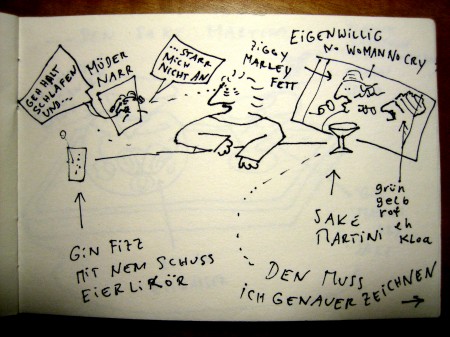 GEH HALT
SCHLAFEN
UND...
MÖDER
NARR
...STARR
MICH
NICHT AN
ZIGGY
MARLEY
FETT
EIGENWILLIG
NO WOMAN NO CRY!
GIN FIZZ
MIT NEM SCHUSS
EIERLIKÖR
SAKE
MARTINI
grün
gelb
rot
eh
kloa
DEN MUSS
ICH GENAUER ZEICHNEN